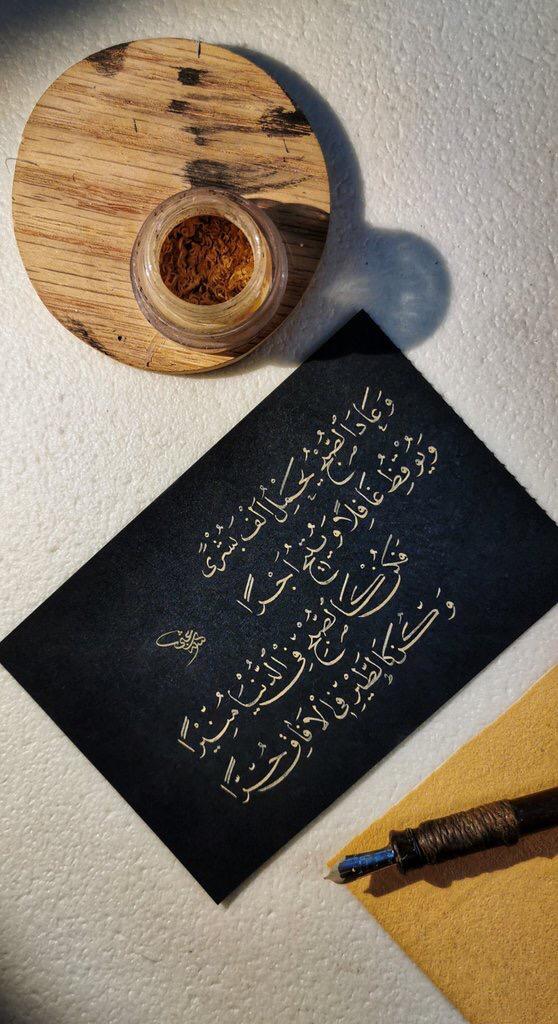 وَعَادَ الصُّبْحُ يَحْمِلُ أَلْفَ بُشْرَى
وَيُوقِظُ غَافِلًا وَيُتِيحُ أَجْرًا
فَكُنْ كَالصُّبْحِ فِي الدُّنْيَا مُنِيْرًا
وَكُنْ كَالطَّيْرِ فِي الْآفَاقِ حُرًّا